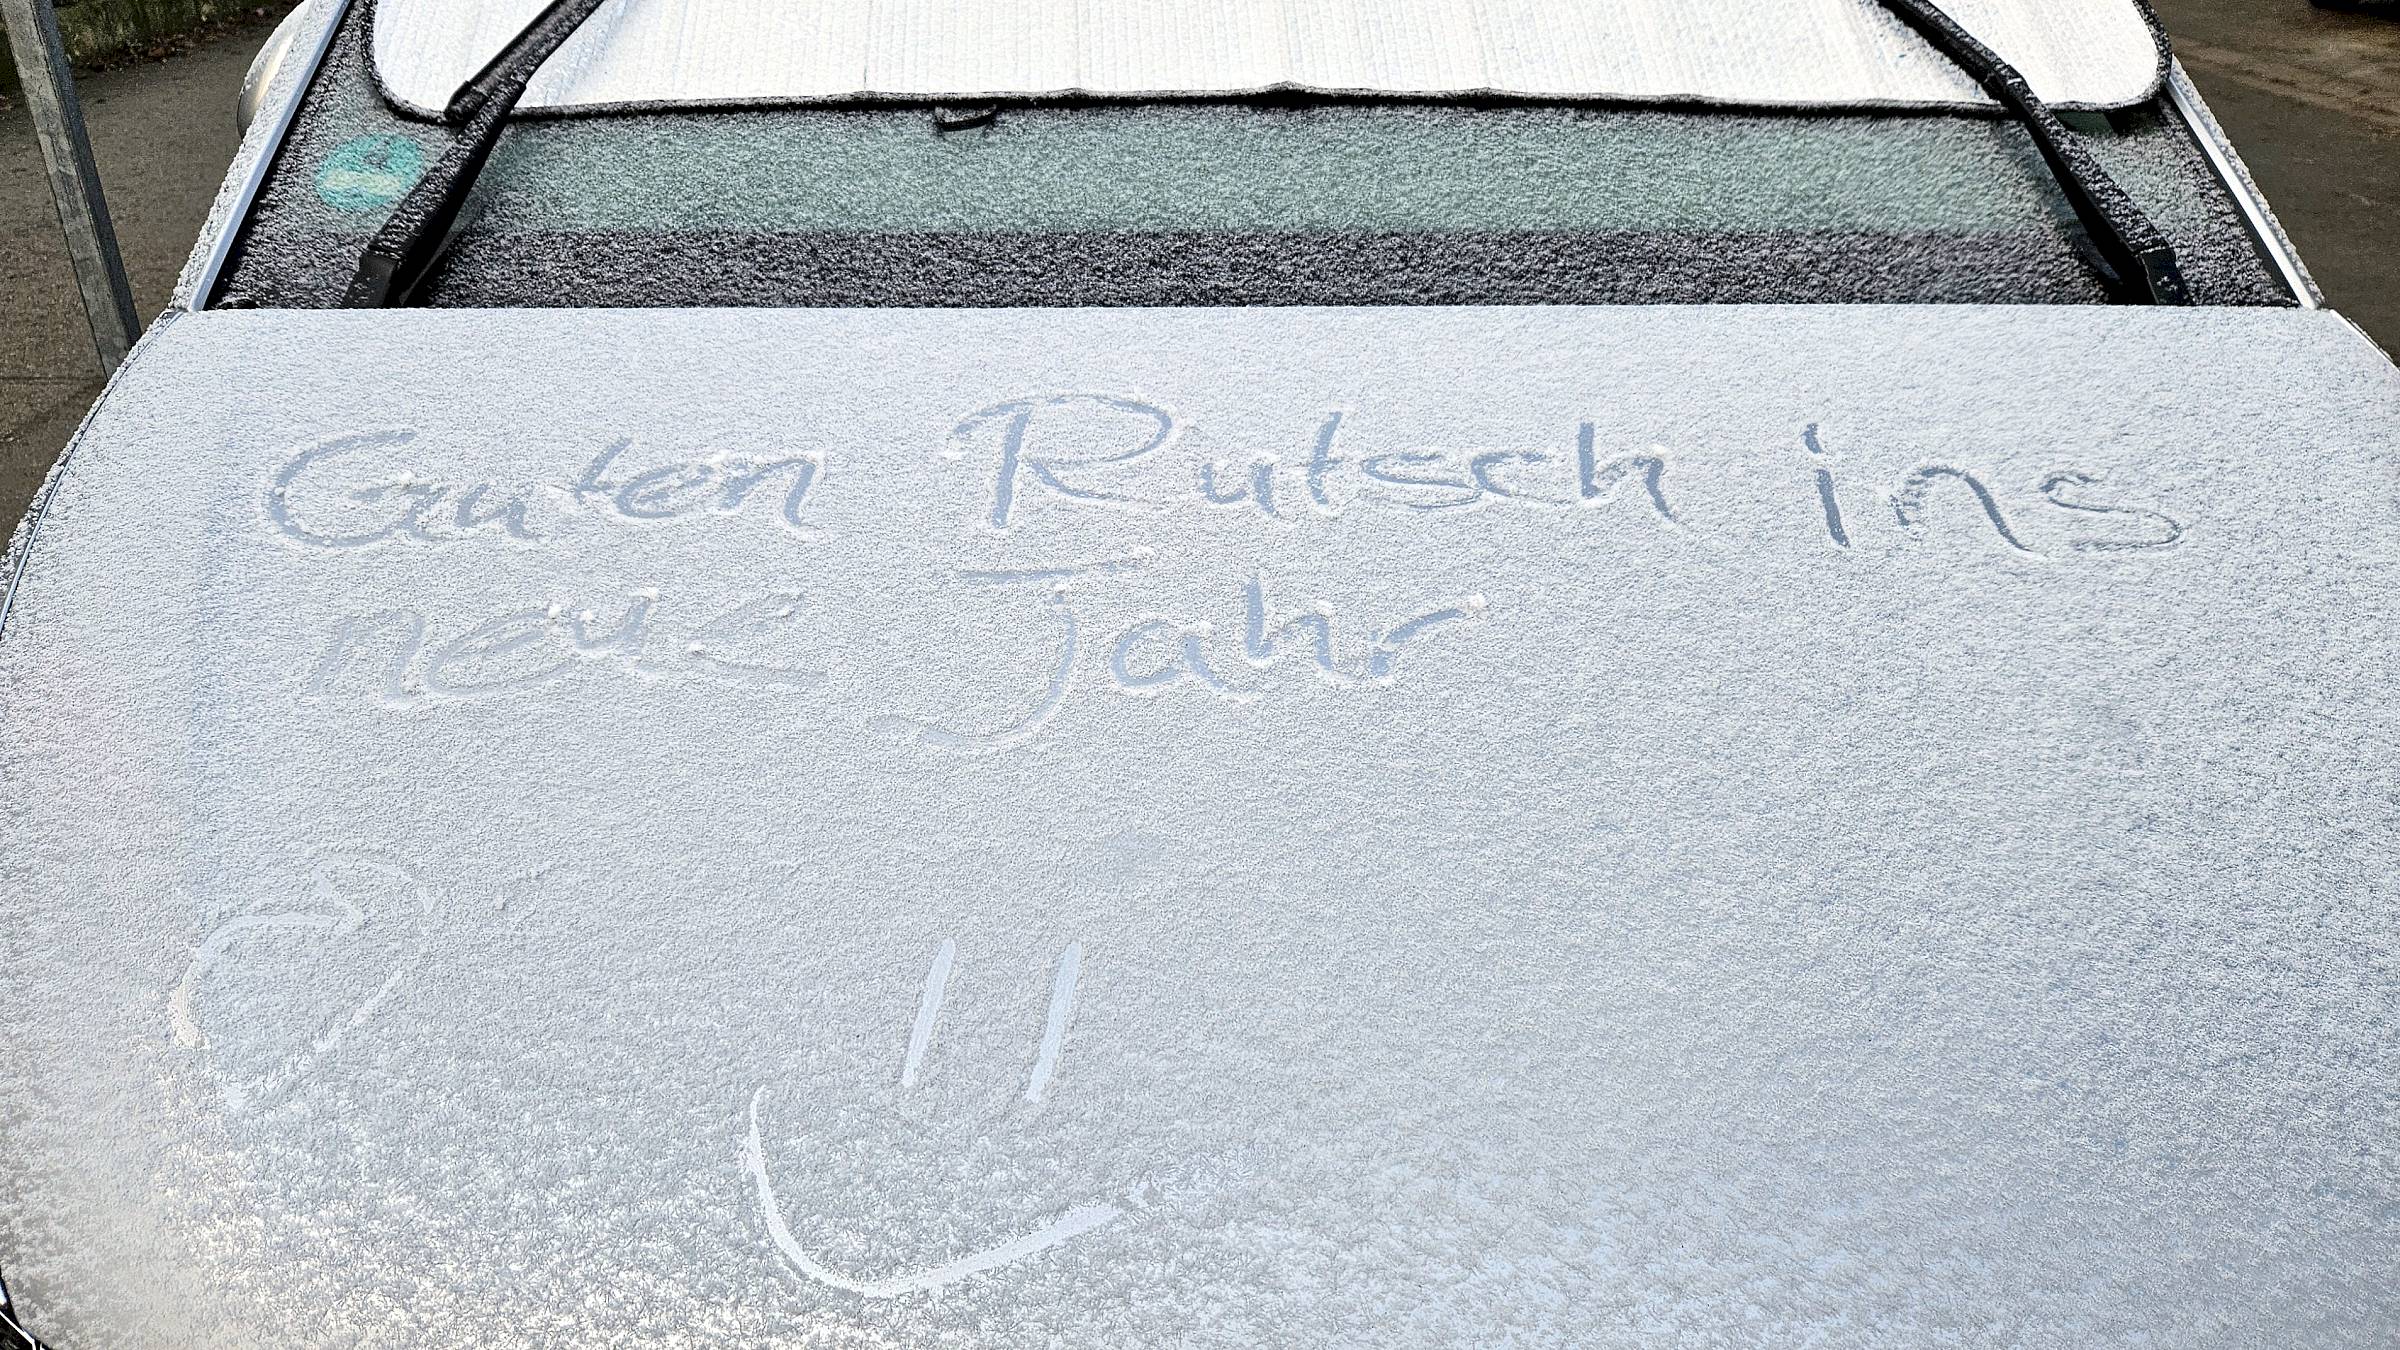 Guten Rutsch ins
neue Jahr